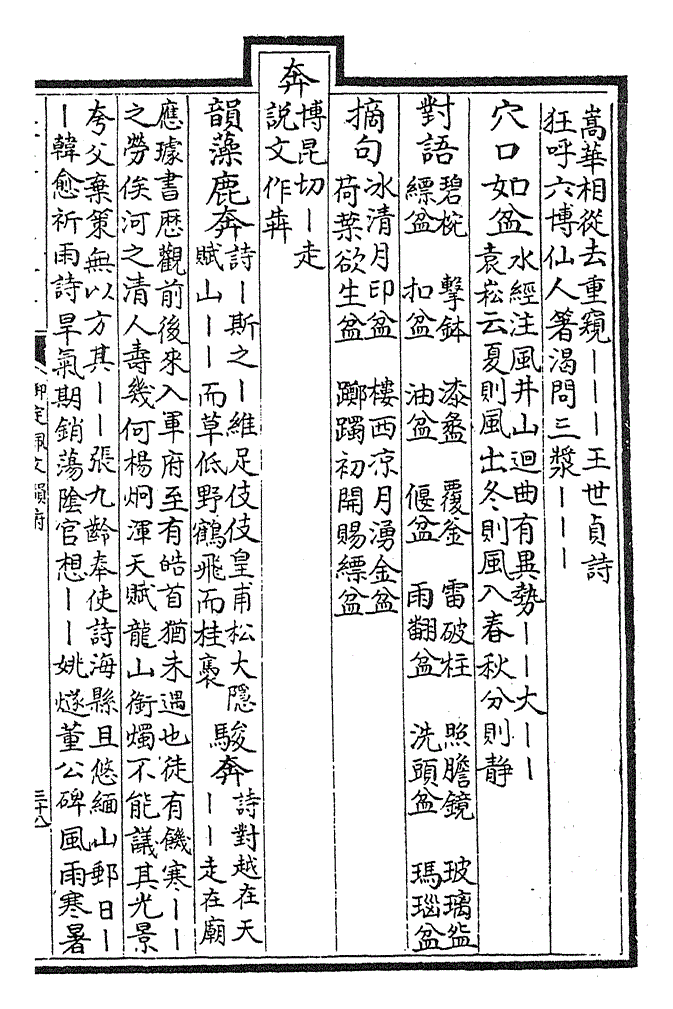 嵩華相從去重窺｜｜｜王世貞詩
狂呼六博仙人箸渴問三漿｜｜｜
穴口如盆水經注風井山迴曲有異勢｜｜大｜｜
袁崧云夏則風出冬則風入春秋分則静
對語碧椀 擊鉢 漆盤 覆釜 雷破柱 照膽鏡 玻璃㿿
縹盆 扣盆 油盆 偃盆 雨翻盆 洗頭盆 瑪瑙盆
摘句冰清月印盆 樓西凉月湧金盆
荷葉欲生盆 躑躅初開賜縹盆
奔博昆切｜走
説文作犇
韻藻鹿奔詩｜斯之｜維足伎伎皇甫松大隱
賦山｜｜而草低野鶴飛而桂褭
駿奔詩對越在天
｜｜走在廟
應璩書歷觀前後來入軍府至有皓首猶未遇也徒有饑寒｜｜
之勞俟河之清人壽幾何楊炯渾天賦龍山銜燭不能議其光景
夸父棄策無以方其｜｜張九齡奉使詩海縣且悠緬山郵日｜
｜韓愈祈雨詩旱氣期銷蕩陰官想｜｜姚燧董公碑風雨寒暑
御定佩文韻府